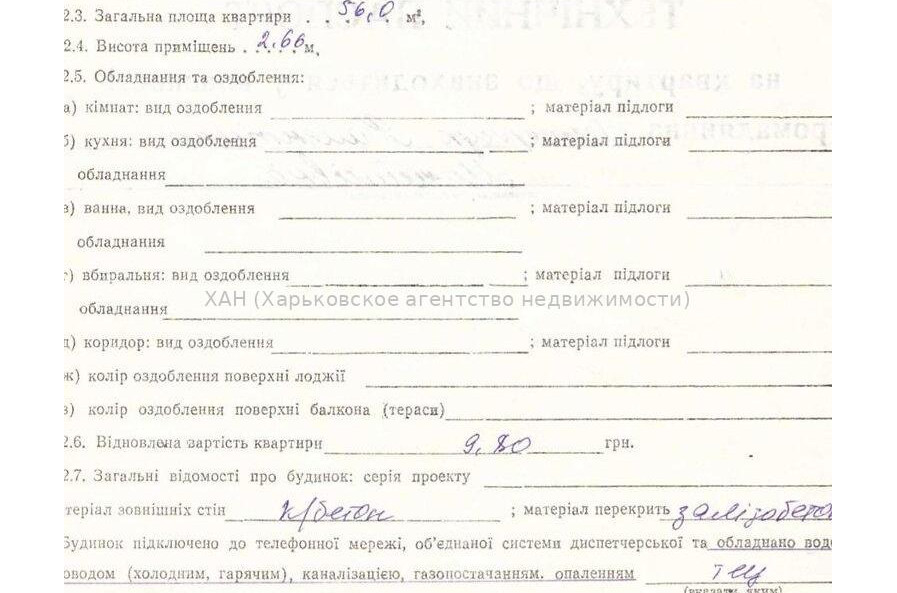 2.3. Загальна площа квартири . . 56,0 . м²,
2.4. Висота приміщень . 2.66 м.
2.5. Обладнання та оздоблення:
а) кімнат: вид оздоблення ; матеріал підлоги
б) кухня: вид оздоблення ; матеріал підлоги
обладнання
в) ванна, вид оздоблення ; матеріал підлоги
обладнання
г) вбиральня: вид оздоблення ; матеріал підлоги
ХАН (Харьковское агентство недвижимости)
обладнання
д) коридор: вид оздоблення ; матеріал підлоги
ж) колір оздоблення поверхні лоджії
з) колір оздоблення поверхні балкона (тераси)
2.6. Відновлена вартість квартири 9,80 грн.
2.7. Загальні відомості про будинок: серія проекту
теріал зовнішніх стін к/бетон ; матеріал перекрить залізобетон
Будинок підключено до телефонної мережі, об'єднаної системи диспетчерської та обладнано водо
оводом (холодним, гарячим), каналізацією, газопостачанням. опаленням ТЕЦ
(вказати яким)